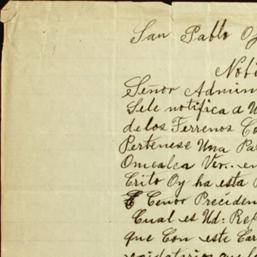 San Pablo O
Noti
Señor Admin
Sele notifica a U
delos Terrenos Co
Pertenese Una Pa
Omealca Ver.. en
Crito Oy ha esta
Cenor Preciden
Cual es Ud: Rep
que Con este Car